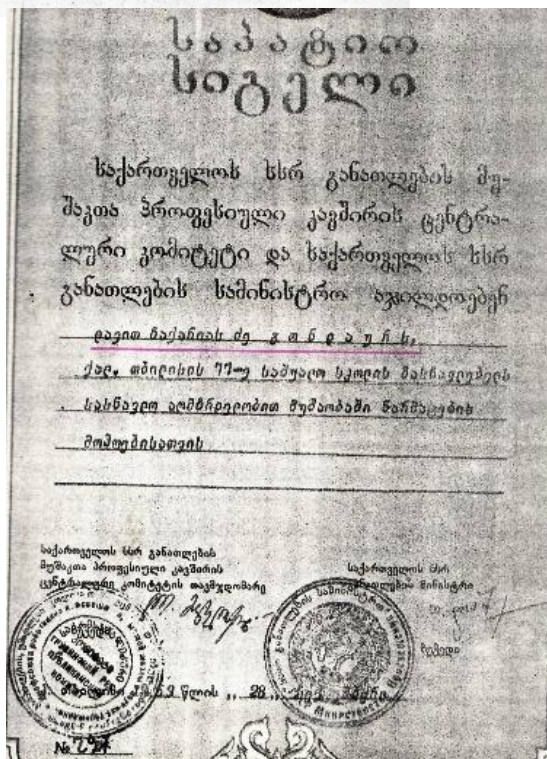 საპატიო
სიგელი
საქართველოს სსრ განათლების მუ-
შაკთა პროფესიული კავშირის ცენტრა-
ლური კომიტეტი და საქართველოს სსრ
განათლების სამინისტრო აჯილდოებენ
დავით ზაქარიას ძე გონდაურს,
ქალ. თბილისის 77-ე საშუალო სკოლის მასწავლებელს
სასწავლო აღმზრდელობით მუშაობაში წარმატების
მოპოებისათვის
საქართველოს სსრ განათლების
მუშაკთა პროფესიული კავშირის
ცენტრალური კომიტეტის თავმჯდომარე
საქართველოს სსრ
განათლების მინისტრი
წლის „ 28 „
№